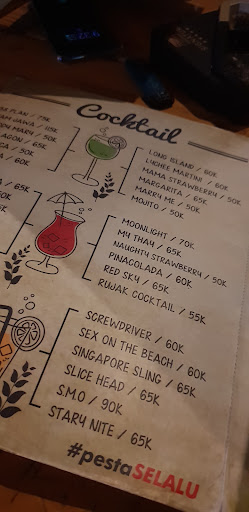 Cocktail
PLAN / 75K
JAWA / 65K
MARY / 50K
AGON / 65K
/ 65K
/ 60K
LONG ISLAND / 60K
LYCHEE MARTINI / 60K
MAMA STRAWBERRY / 50K
MARGARITA / 65K
MARRY ME / 50K
MOJITO / 50K
/ 65K
/ 50K
MOONLIGHT / 70K
MY THAY / 65K
NAUGHTY STRAWBERRY / 50K
PINACOLADA / 60K
RED SKY / 65K
RUJAK COCKTAIL / 55K
SCREWDRIVER / 60K
SEX ON THE BEACH / 60K
SINGAPORE SLING / 65K
SLICE HEAD / 65K
S.M.O / 90K
STARY NITE / 65K
#pestaSELALU